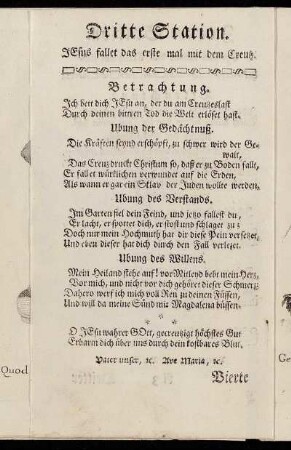 Dritte Station.
JEsus fallet das erste mal mit dem Creutz.
Betrachtung.
Ich bett dich JEsu an, der du am Creutzeslast
Durch deinen bittren Tod die Welt erlöset hast.
Ubung der Gedächtnuß.
Die Kräfften seynd erschöpft, zu schwer wird der Ge-
walt,
Das Creuz druckt Christum so, daß er zu Boden fallt,
Er fallet würklichen verwundet auf die Erden,
Als wann er gar ein Sklav der Juden wollte werden.
Ubung des Verstands.
Im Garten fiel dein Feind, und jetzo fallest du,
Er lacht, er spottet dich, er stost und schlaget zu:
Doch nur mein Hochmuth hat dir diese Pein versetzet,
Und eben dieser hat dich durch den Fall verletzet.
Ubung des Willens.
Mein Heiland stehe auf! vor Mitleyd bebt mein Herz,
Vor mich, und nicht vor dich gehöret dieser Schmerz:
Dahero werf ich mich voll Reu zu deinen Füssen,
Und will da meine Sünd wie Magdalena büssen.
O JEsu wahrer GOtt, gecreutzigt höchstes Gut
Erbarm dich über uns durch dein kostbares Blut.
Pater unser, ꝛc. Ave Maria, ꝛc.
Vierte
Quod
Ge